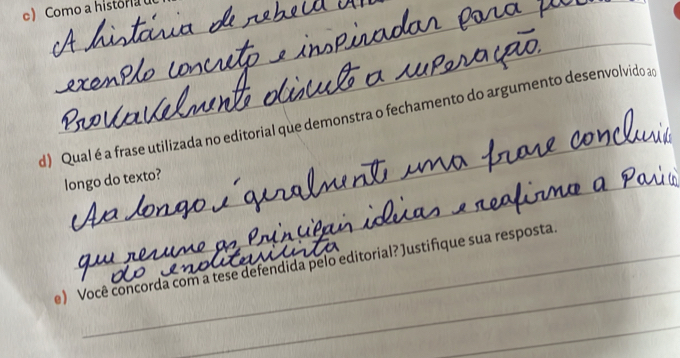 c) Como a história de
A história de rebeca
exemplo concreto e inspirador para
Provavelmente discute a superação.
d) Qual é a frase utilizada no editorial que demonstra o fechamento do argumento desenvolvido ao
longo do texto?
Ao longo é geralmente uma frase
que resume as principais idéias e reafirma a
do
e) Você concorda com a tese defendida pelo editorial? Justifique sua resposta.